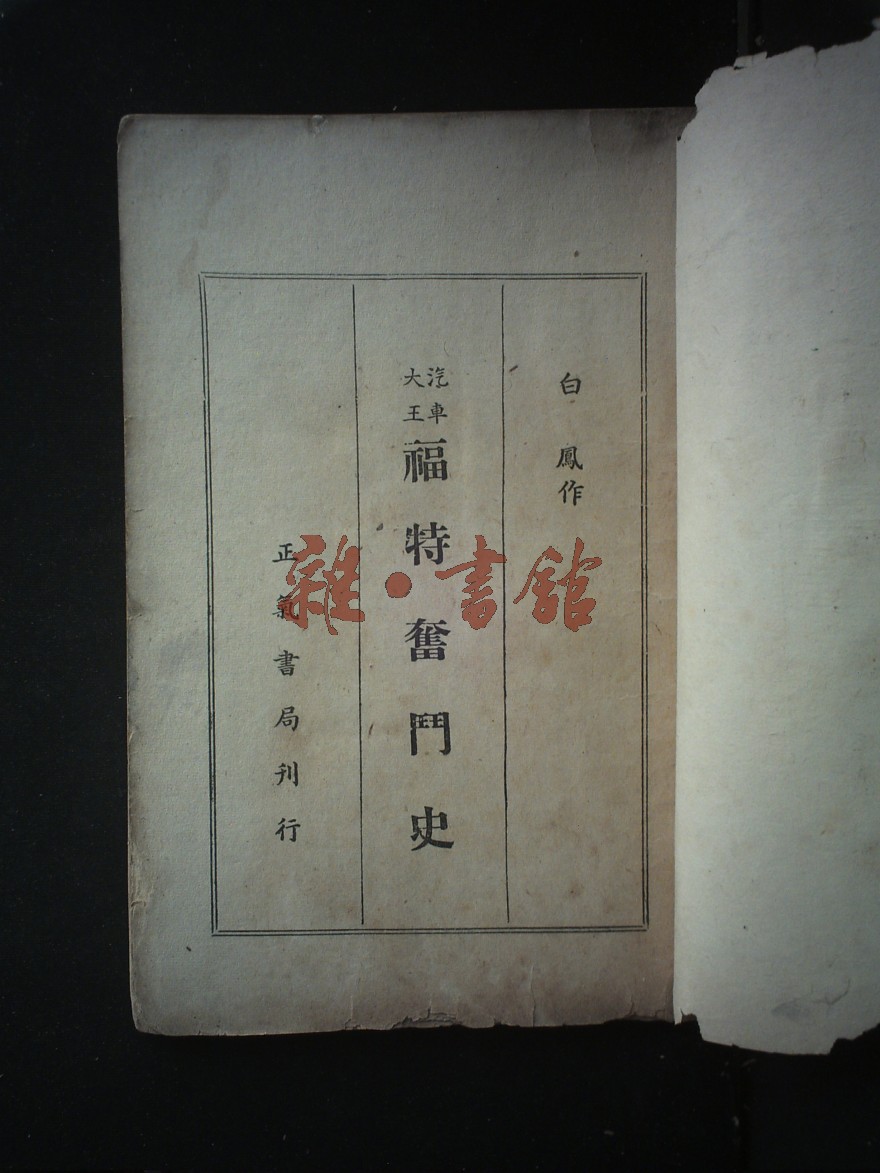 白鳳作
汽車大王
福特奮鬥史
正氣書局刊行
雜·書館